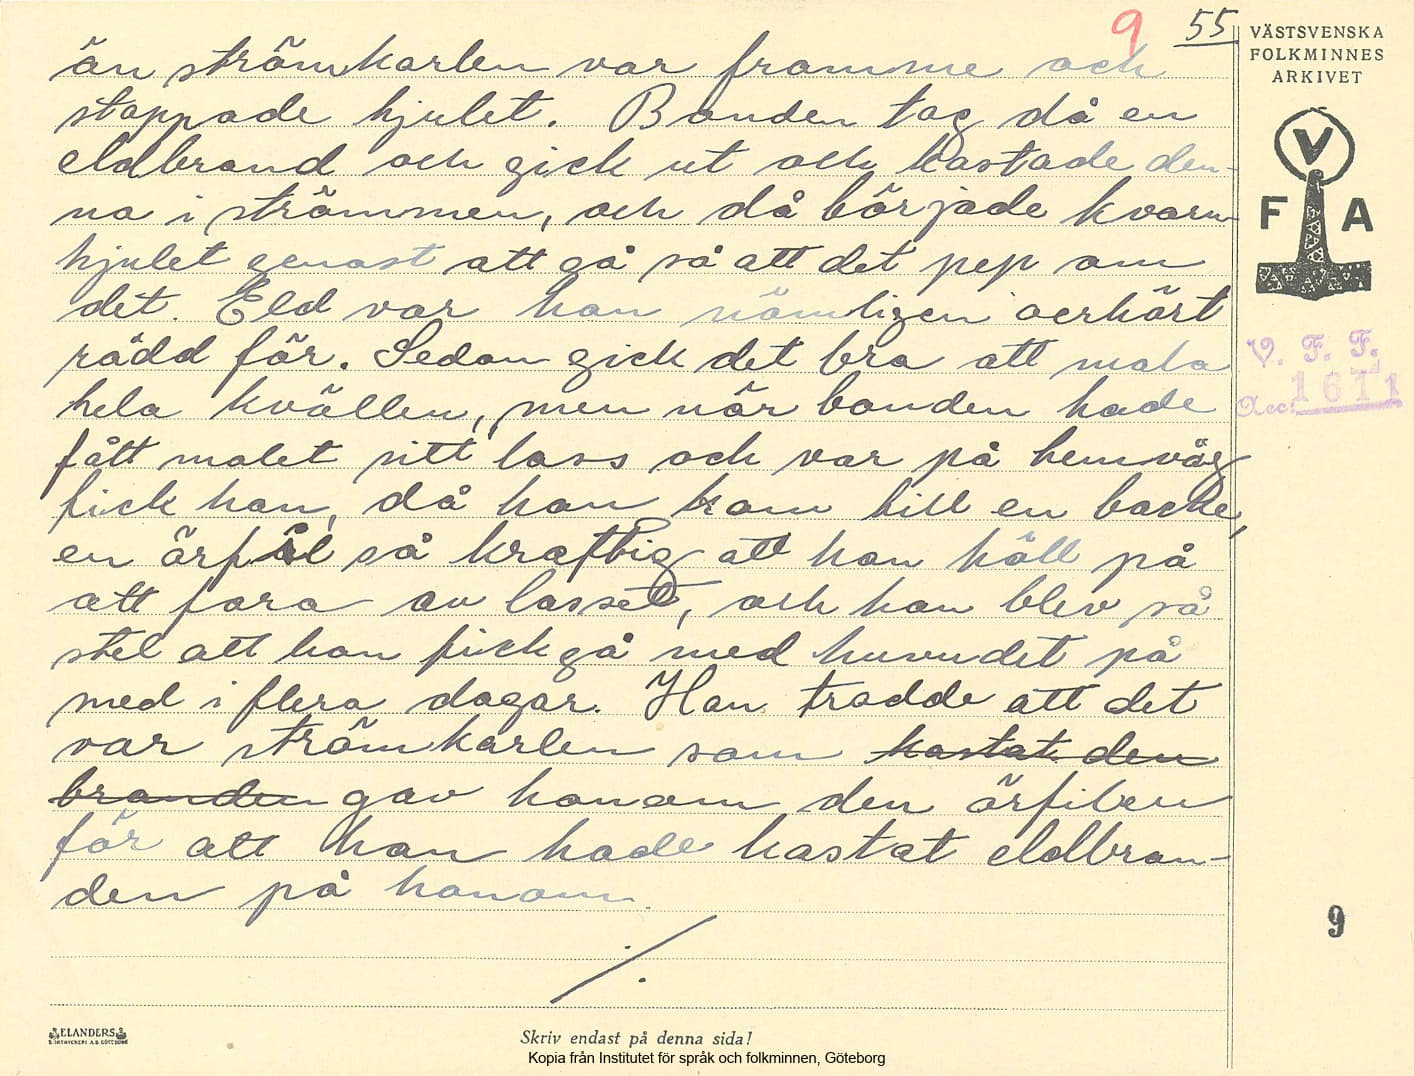 9 55
VÄSTSVENSKA
FOLKMINNES
ARKIVET
V
F A
V. F. F.
Acc: 1611
än strömkarlen var framme och
stoppade hjulet. Bonden tog då en
eldbrand och gick ut och kastade den-
na i strömmen, och då började kvarn-
hjulet genast att gå så att det pep om
det. Eld var han nämligen oerhört
rädd för. Sedan gick det bra att mala
hela kvällen, men när bonden hade
fått malet sitt lass och var på hemväg
fick han, då han kom till en backe,
en örfil så kraftig att han höll på
att fara av lasset, och han blev så
stel att han fick gå med huvudet på
med i flera dagar. Han trodde att det
var strömkarlen som kastat den
branden gav honom den örfilen
för att han hade kastat eldbran-
den på honom.
./.
9
ELANDERS
Skriv endast på denna sida!
Kopia från Institutet för språk och folkminnen, Göteborg